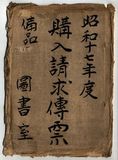 昭和十七年度
購入請求傳票
備品
圖書室